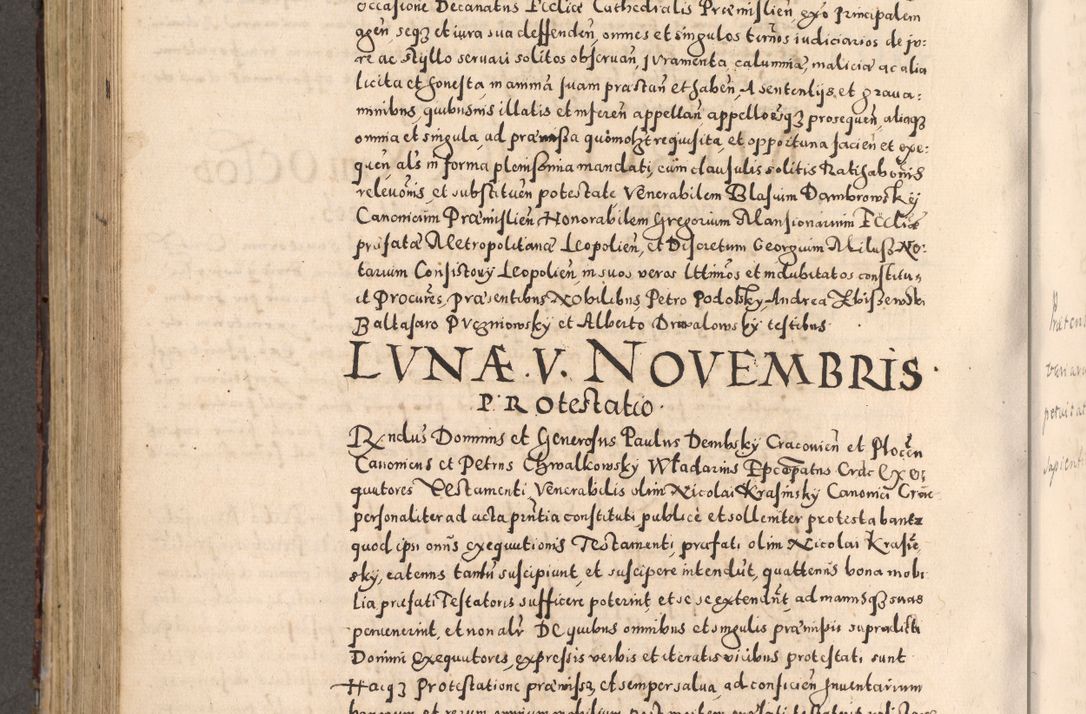 occasione Decanatus Eccliæ Cathedralis Præmislien̄, ex̄o Principalem
agen̄, seqꝫ et iura sua deffenden̄, omnes et singulos term̄os iudiciarios de ju:
re ac styllo servari solitos observan̄, juramenta calumniæ, maliciæ ac alia
licita et honesta in animā suam præstan̄ et haben̄, A sententijs et grava:
minibus, quibusvis illatis et inferen̄ appellan̄, appello͞esqꝫ prosequen̄, aliaqꝫ
omnia et singula, ad præmissa quomo͞lzt requisita, et opportuna facien̄ et exe:
quen̄, al̄s in forma plenissima mandati, cum clausulis solitis Ratihabo͞nis
relevo͞nis, et substituen̄ potestate, Venerabilem Blasium Dambrowskÿ
Canonicum Præmislien̄ Honorabilem Gregorium Mansionarium Eccliæ
præfatæ Metropolitanæ Leopolien̄, et Discretum Georgium Milusz No:
tarium Consistorÿ Leopolien̄, in suos veros lttimōs et indubitatos constitu,
it Procur̄es, præsentibus Nobilibus, Petro Podolsky, Andrea Zbiszewski
Baltasaro Puczniowskÿ et Alberto Drwalowskÿ testibus.
LVNÆ. V. NOVEMBRIS.
PROtestatio.
Rndus Dominus et Generosus Paulus Dembskÿ Cracovien̄ et Plocen̄
Canonicus et Petrus Chwalkowskÿ Władarius Ep͞copatus Crac̄ Exe:
quutores Testamenti, Venerabilis olim Nicolai Krasinskÿ Canonici Crac̄
personaliter ad acta prn̄tia constituti, publicè et sollemniter protestabantꝛ
quod ipsi on̄us exequutionis Testamenti, præfati olim Nicolai Krasiē,
skÿ, eatenus tantū suscipiunt, et suscipere intendūt, quattenus bona mobi
lia præfati Testatoris sufficere poterint, et se se extendūt, ad manusqꝫ suas
pervenerint, et non al̄r DE quibus omnibus et singulis præmissis supradicti
Domini Exequutores, expressis verbis et iteratis vicibus protestati sunt
Hacqꝫ Protestatione præmissa, et semper salva, ad conficien̄ Inventarium